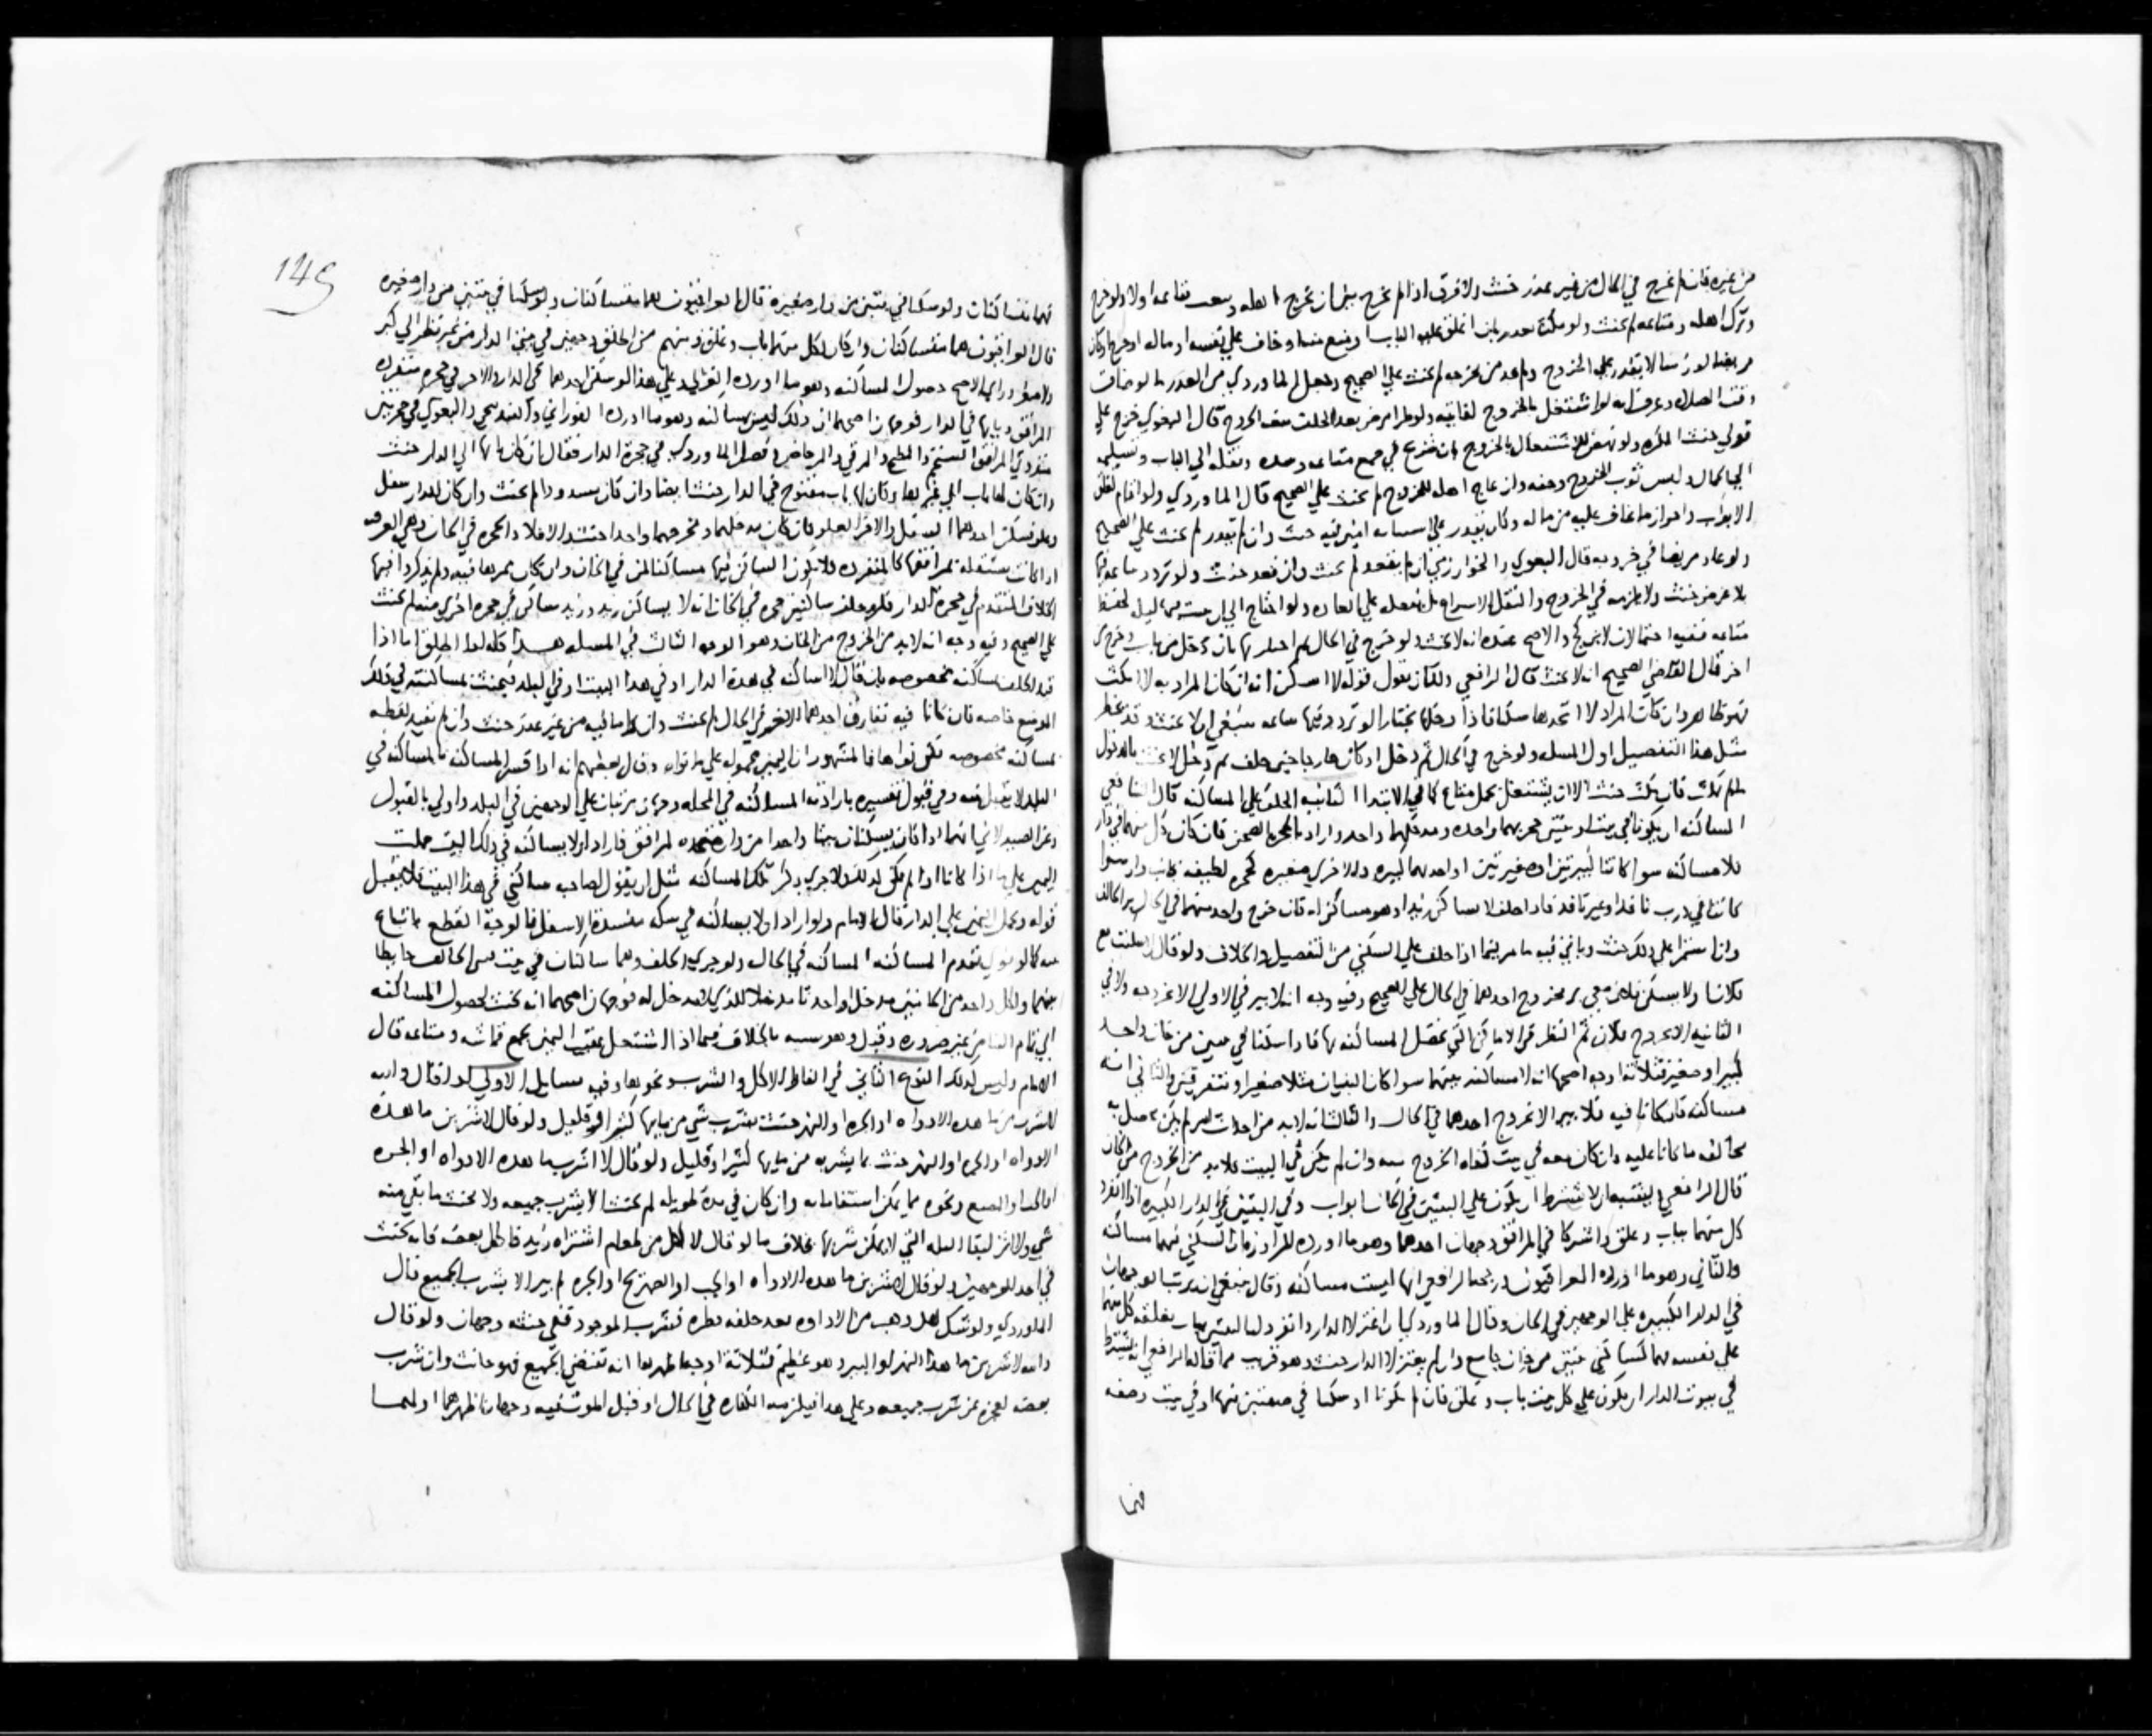 من غيره فان لم يخرج في الحال من غير عذر حنث ولا فرق اذا لم يخرج بين ان يخرج اهله ومتاعه اولا ولو خرج
وترك اهله ومتاعه لم يحنث ولو مكث لعذر بان اغلق عليه الباب او منع منه او خاف على نفسه او ماله او
مريضا او زمنا لا يقدر على الخروج ولم يجد من يخرجه لم يحنث على الصحيح وجعل الماوردي من العذر ما لو ضاق
وقت الصلاة وعرف انه لو اشتغل بالخروج لفاتته ولو طرا مرض بعد الحلف قال البغوي خرج على
قولي حنث المكره ولو نهض للاشتغال بالخروج بان شرع في جمع متاعه ونقله الى الباب
الى الحال ولبس ثوب الخروج وازعاج اهله للخروج لم يحنث على الصحيح قال الماوردي ولو اقام لغلق
الابواب واحراز ما يخاف عليه من ماله وكان يقدر على امين فيه حنث وان لم يقدر لم يحنث على الصحيح
ولو عاد مريضا في خروجه قال البغوي والخوارزمي ان لم يقعد لم يحنث وان قعد حنث ولو تردد ساعة فيها
بلا غرض حنث ولا يلزمه في الخروج والنقل الاسراع بل يفعله على العادة ولو احتاج الى ان يبيت فيها ليلة لحفظ
متاعه ففيه احتمالان لابن كج والاصح عنده انه لا يحنث ولو خرج في الحال ثم اجتاز بها بان دخل من باب وخرج من
اخر قال القاضي الصحيح انه لا يحنث قال الرافعي ولك ان تقول قوله لا اسكن انه ان كان المراد به لا امكث
فهو ظاهر وان كان المراد لا اتخذها مسكنا فاذا دخلها مجتازا او تردد فيها ساعة ينبغي ان لا يحنث وقد
مثل هذا التفصيل اول المسلة ولو خرج في الحال ثم دخل او كان خارجا حين حلف ثم دخل لا يحنث بالدخول
ما لم يمكث فان مكث حنث الا ان يشتغل بحمل متاع كما في الابتدا الثانية الحلف على المساكنة قال الشافعي
المساكنة ان يكونا في بيت او بيتين حجرتهما واحدة ومدخلهما واحد واراد بالحجرة الصحن فان كان كل منهما في دار
فلا مساكنة سوا كانتا كبيرتين او صغيرتين او احداهما كبيرة والاخرى صغيرة كحجرة لطيفة بجانب دار سوا
كانتا في درب نافذ او غير نافذ فاذا حلف لا يساكن زيدا وهو مساكن له فان خرج واحد منهما في الحال بر الحالف
وان استمرا على ذلك حنث وياتي فيه ما مر فيما اذا حلف على السكنى من التفصيل والخلاف ولو قال لا سكنت مع
فلان او لا يسكن فلان معي بر بخروج احدهما في الحال على الصحيح وفيه وجه انه لا يبر في الاولى الا بخروجه ولا في
الثانية الا بخروج فلان ثم النظر في الاماكن التي تحصل المساكنة بها فاذا سكنا في بيتين من خان واحد
كبير او صغير فثلاثة اوجه اصحها انه لا مساكنة بينهما سوا كان البيتان متلاصقين او متفرقين والثاني انه
مساكنة فان كانا فيه فلا يبر الا بخروج احدهما في الحال والثالث انه لا بد من
بخالف ما كانا عليه وان كان معه في بيت كفاه الخروج منه وان لم يكن في البيت فلا بد من الخروج من الخان
قال الرافعي لا يشترط ان يكون على البيتين في الخان ابواب وفي البيتين في الدار الكبيرة اذا انفرد
كل منهما بباب وغلق واشتركا في المرافق وجهان احدهما وهو ما اورده ان السكنى فيهما مساكنة
والثاني وهو ما اورده العراقيون ورجحه الرافعي انها ليست مساكنة وقال ينبغي ان يرتب الوجهان
في الدار الكبيرة على الوجهين في الخان وقال الماوردي ان اعتزلا الدار وانفرد كل بباب يغلقه كل منهما
على نفسه فهما كساكني بيتين من خان جامع وان لم يعتزلا الدار حنث وهو قريب مما قاله الرافعي انه يشترط
في بيوت الدار ان يكون على كل بيت باب وغلق فان لم يكونا او سكنا في صفتين منها او في بيت وصفة
فهما
145
فهما متساكنان ولو سكنا في بيتين من دار صغيرة قال العراقيون هما متساكنان ولو سكنا في بيتين من دار صغيرة
قال العراقيون هما متساكنان وان كان لكل منهما باب وغلق ومنهم من اطلق وجهين في بيتي الدار من غير نظر الى كبر
ولا صغر وراى الاصح حصول المساكنة وهو ما اورده الغزالي وعلى هذا لو سكن احدهما في الدار والاخر في حجرة منفردة
المرافق وبابها في الدار فوجهان اصحهما ان ذلك ليس مساكنة وهو ما اورده الفوراني والبغوي في حجرتين
منفردتي المرافق المستحم والمطبخ والمرقى والمرحاض وفصل الماوردي في حجرة الدار فقال ان كان بابها الى الدار حنث
وان كان لها باب الى غيرها وكان لها باب مفتوح في الدار حنث ايضا وان كان مسدودا لم يحنث وان كان للدار سفل
وعلو فسكن احدهما السفل والاخر العلو فان كان مدخلهما ومخرجهما واحدا حنث والا فلا والحجرة في الخان وهي الغرفة
اذا كانت مستقلة بمرافقها كالمنفردة فلا يكون الساكن فيها مساكنا لمن في الخان وان كان ممرها فيه ولم يذكروا فيها
الخلاف المتقدم في حجرة الدار فلو حلف ساكن حجرة في الخان انه لا يساكن زيدا وزيد ساكن في حجرة اخرى منه لم يحنث
على الصحيح وفيه وجه انه لا بد من الخروج من الخان وهو الوجه الثالث في المسلة هذا كله اذا اطلق اما اذا
قيد الحلف بمساكنة مخصوصة بان قال لا اساكنه في هذه الدار او في هذا البيت او في البلد فيحنث بمساكنته في ذلك
الموضع خاصة فان كانا فيه تفارق احدهما الاخر في الحال لم يحنث وان داما فيه من غير عذر حنث وان لم يقيد لفظه
بمساكنة مخصوصة لكن نواها فالمشهور ان اليمين محمولة على ما نواه وقال بعضهم انه اذا فسر المساكنة بالمساكنة في
البلد لا يقبل منه وفي قبول تفسيره بارادة المساكنة في المحلة وجهان مرتبان على الوجهين في البلد واولى بالقبول
وعن الصيدلاني انهما اذا كانا يسكنان بيتا واحدا من دار متحدة المرافق فاراد ان لا يساكنه في ذلك البيت حملت
اليمين عليه اما اذا كانا لم يكن كذلك ولا جرى ذكر تلك المساكنة مثل ان يقول لصاحبه ساكني في هذا البيت فلا يقبل
قوله وتحمل اليمين على الدار قال الامام ولو اراد ان لا يساكنه في سكة منسدة الاسفل فالوجه القطع باتباع
نيته كما لو تقدم المساكنة المساكنة في الحال ولو جرى الحلف وهما ساكنان في بيت فبنى الحالف حائطا
بينهما ولكل واحد من الجانبين مدخل او احدثا مدخلا للذي لا مدخل له فوجهان اصحهما انه يحنث لحصول المساكنة
الى تمام البنا من غير ضرورة وقيل بالخلاف فيما اذا اشتغل عقيب اليمين بجمع قماشه ومتاعه قال
الامام وليس كذلك النوع الثاني في الفاظ الاكل والشرب ونحوهما وفيه مسايل الاولى لو قال والله
لاشرب من ما هذه الاداوة او الجرة او النهر حنث بشرب شي من مايها كثير او قليل ولو قال لاشربن ما هذه
الاداوة او الجرة او النهر حنث بما يشربه من مايها كثيرا وقليل ولو قال لا اشرب ما هذه الاداوة او الجرة
او الحب او المصنع ونحوه مما يمكن استيفاؤه وان كان في مدة طويلة لم يحنث الا بشرب جميعه ولا يحنث ما بقي منه
شي ولا اثر لبقا البلة التي لا يمكن شربها بخلاف ما لو قال لا اكل من طعام اشتراه زيد فاكل بعضه فانه يحنث
في احد الوجهين ولو قال لاشربن ما هذه الاداوة او الحب او الصهريج او الجرة لم يبر الا بشرب الجميع قال
الماوردي ولو شك هل ذهب من الاداوة بعد حلفه قطرة فشرب الموجود ففي حنثه وجهان ولو قال
والله لاشربن ما هذا النهر او البير وهو عظيم فثلاثة اوجه اظهرها انه تقتضي الجميع فهو حانث وان شرب
بعضه لعجزه عن شرب جميعه وعلى هذا فيلزمه الكفارة في الحال او قبيل الموت فيه وجهان اظهرهما اولهما